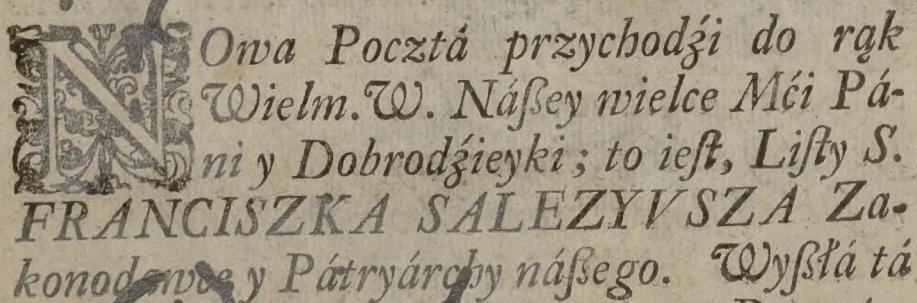 NOwa Pocztá przychodźi do rąk
Wielm. W. Náſzey wielce Mći Pá-
ni y Dobrodźieyki; to ieſt, Liſty S.
FRANCISZKA SALEZYVSZA Za-
konodawce y Pátryárchy náſzego. Wyſzłá tá